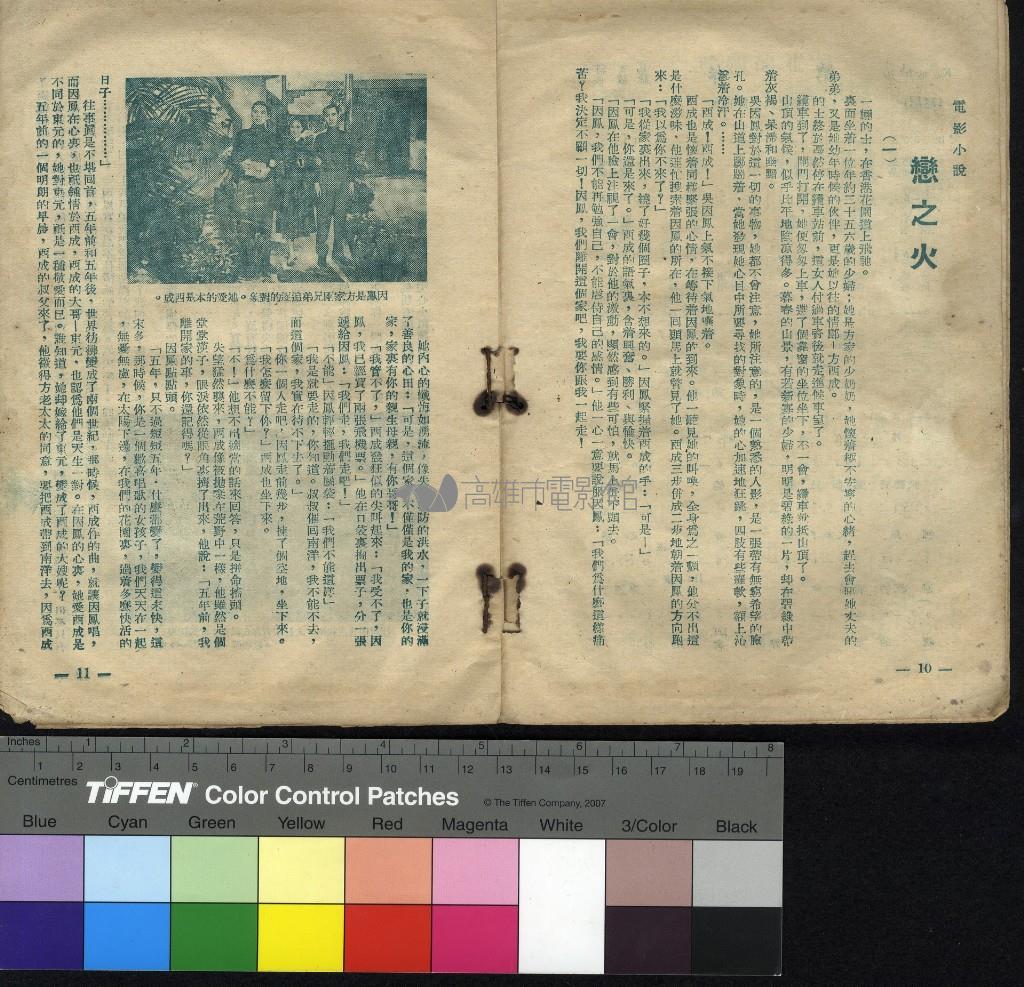 電影小說
戀之火
（一）
一輛的士，在香港花園道上飛馳。
裏面坐着一位年約二十五六歲的少婦；她是方家的少奶奶，她懷着極不安寧的心緒，趕去會晤她丈夫的
弟弟，又是她幼年時候的伙伴，更是她以往的情郎－方西成。
的士終於戛然停在纜車站前，這女人付過車資後就走進候車室了。
鐘車到了，閘門打開，她便匆匆上車，選了個靠窗的坐位坐下，不一會，纜車就抵山頂了。
山頂的氣候，似乎比平地陰寒得多。暮春的山景，有若新寡的少婦，明明是碧綠的一片，却在碧綠中帶
着灰褐、呆滯和黯黯。
吳因鳳對於這一切的事物，她都不曾注意，她所注意的，是一個熟悉的人影，是一張帶有無窮希望的臉
孔。她在山道上躑躅着，當她發現她心目中所要尋找的對象時，她的心加速地狂跳，四肢有些癱軟，額上沁
滲着冷汗……
「西成！西成！」吳因鳳上氣不接下氣地嚷着。
西成也是懷着同樣緊張的心情，在等待着因鳳的到來。他一聽見她的叫喚，全身爲之一顫，他分不出這
是什麼滋味，他連忙搜索着因鳳的所在，他一回頭馬上就瞥見了她。西成三步併成二步地朝着因鳳的方向跑
來：「我以爲你不來了？」
「我從家裏出來，繞了好幾個圈子，本不想來的。」因鳳緊握着西成的手：「可是—」
「可是，你還是來了。」西成的語氣裏，含着興奮、勝利、與愉快。
「因鳳在他臉上注視了一會，對於他的激動，顯然感到有些可怕，就馬上低下頭去。
「因鳳，我們不能再勉強自己，不能虐待自己的感情。」他一心一意要說服因鳳：「我們爲什麼這樣痛
苦？我決定不顧一切！因鳳，我們離開這個家吧，我要你跟我一起走！
— 10 —
因鳳是方家兩兄弟追逐的對象。她愛的本是西成。
她內心的懺悔如湧流，像失了堤防的洪水，一下子就浸滿
了善良的心田：「可是，這個家，不僅僅是我的家，也是你的
家，家裏有你的親生母親，有你哥哥！」
「我管不了，」西成發狂似的尖叫起來：「我受不了，因
鳳，我已經買了兩張飛機票。」他在口袋裏掏出票子，分一張
遞給因鳳：「我們走，我們走吧！」
「不能，」因鳳郭輕擺動着頭袋：「我們不能這樣。」
「我是就要走的，你知道。叔叔催回南洋，我不能不去，
而這個家，我實在待不下去了。」
「你一個人走吧，」因鳳走前幾步，揀了個空地，坐下來。
「我怎麼留下你？」西成也坐下來。
「爲什麼不能？」
「不！」他想不出適當的話來回答，只是拼命搖頭。
失望猛然襲來，西成像被拋棄在荒野中一樣，他雖然是個
堂堂漢子，眼淚依然從眼角裏擠了出來，他說：「五年前，我
離開家的事，你還記得嗎？」
因鳳點點頭。
「五年，只不過短短五年，什麼都變了，變得這末快，這
末多，那時候，你是一個歡喜唱歌的女孩子，我們天天在一起
，無憂無慮，在太陽下邊，在我們的花園裏，過着多麼快活的
日子……………」
往事眞是不堪回首，五年前和五年後，世界彷彿變成了兩個世紀，那時候，西成作的曲，就讓因鳳唱，
而因鳳在心裏，也祇鍾情於西成，西成的大哥－東元，也認爲他們是天生一對。在因鳳的心裏，她愛西成是
不同於東元的，她對東元，祇是一種敬愛而已。誰知道，她却嫁給了東元，變成了西成的大嫂呢？
五年前的一個明朗的早晨，西成的叔父來了，他徵得方老太太的同意，要把西成帶到南洋去，因爲西成
— 11 —
高雄市電影館
Inches 1 2 3 4 5 6 7 8
1 2 3 4 5 6 7 8 9 10 11 12 13 14 15 16 17 18 19
Centimetres
TIFFEN Color Control Patches © The Tiffen Company, 2007
Blue Cyan Green Yellow Red Magenta White 3/Color Black